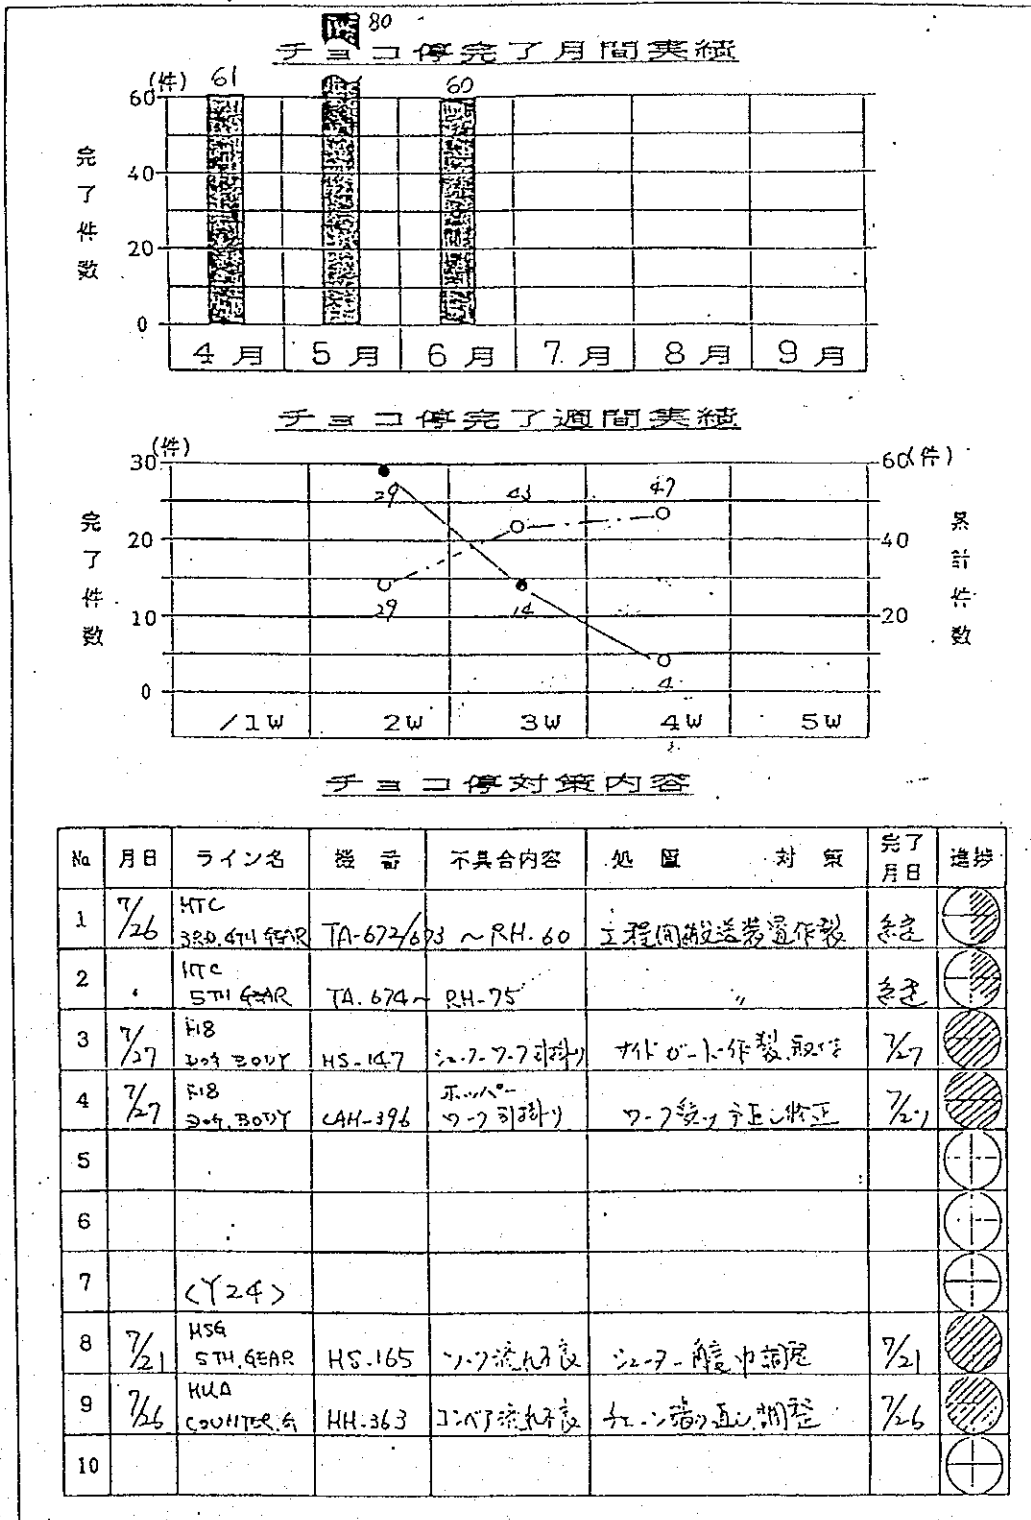 80
チョコ停完了月間実績
(件) 61 60
60
40
20
0
完了件数
4月 5月 6月 7月 8月 9月
チョコ停完了週間実績
(件) 60(件)
30
20 40
10 20
0
完了件数
累計件数
29 43 47
29 14
4
/1W 2W 3W 4W 5W
チョコ停対策内容
No 月日 ライン名 機番 不具合内容 処置 対策 完了月日 進捗
1 7/26 MTC 3RD.4TH GEAR TA-672/673 ~ RH.60 工程間搬送装置作製
2 MTC 5TH GEAR TA.674~ RH-75 〃
3 7/27 BODY HS-147 シューターワーク引掛り 作製 取付 7/27
4 7/27 BODY CAH-396 ホッパーワーク引掛り ワーク受け 修正 7/27
5
6
7 <Y24>
8 7/21 MSG 5TH.GEAR HS-165 ワーク流れ不良 シューター角度 巾調整 7/21
9 7/26 COUNTER.G HH-363 コンベア流れ不良 チェーン張り直し.調整 7/26
10